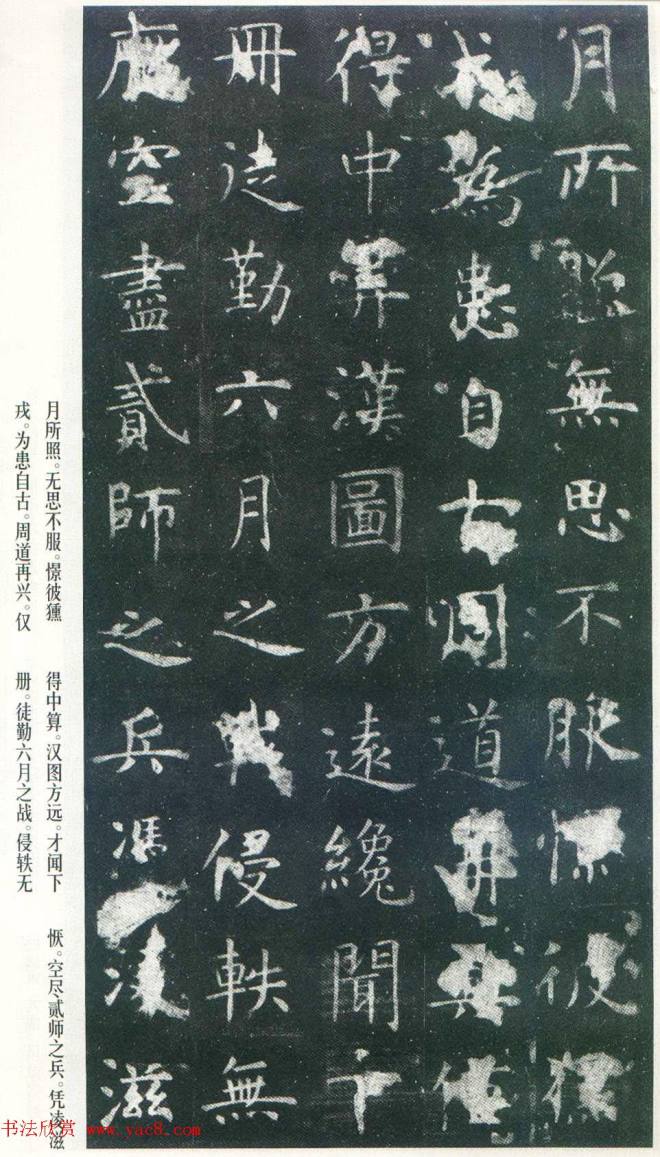 月所照無思不服憬彼獯
戎為患自古周道再興僅
得中筭漢圖方遠纔聞下
冊徒勤六月之戰侵軼無
厭空盡貳師之兵馮凌滋
月所照。无思不服。憬彼獯
戎。为患自古。周道再兴。仅
得中算。汉图方远。才闻下
册。徒勤六月之战。侵轶无
恹。空尽贰师之兵。凭凌滋
书法欣赏 www.yac8.com